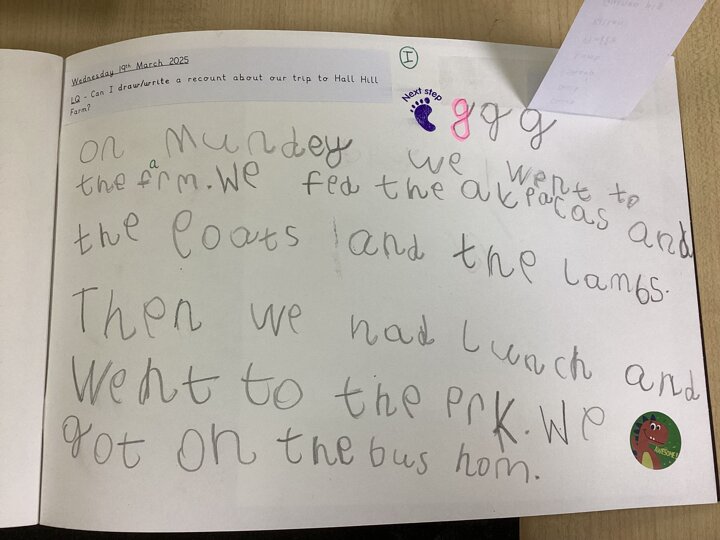 Wednesday 19th March 2025
LQ - Can I draw/write a recount about our trip to Hall Hill
Farm?
I
Next step
g g g
on Mundey we went to
the farm. We fed the akpacas and
the goats and the lambs.
Then we had lunch and
Went to the prk. We
got on the bus hom.
AWESOME!